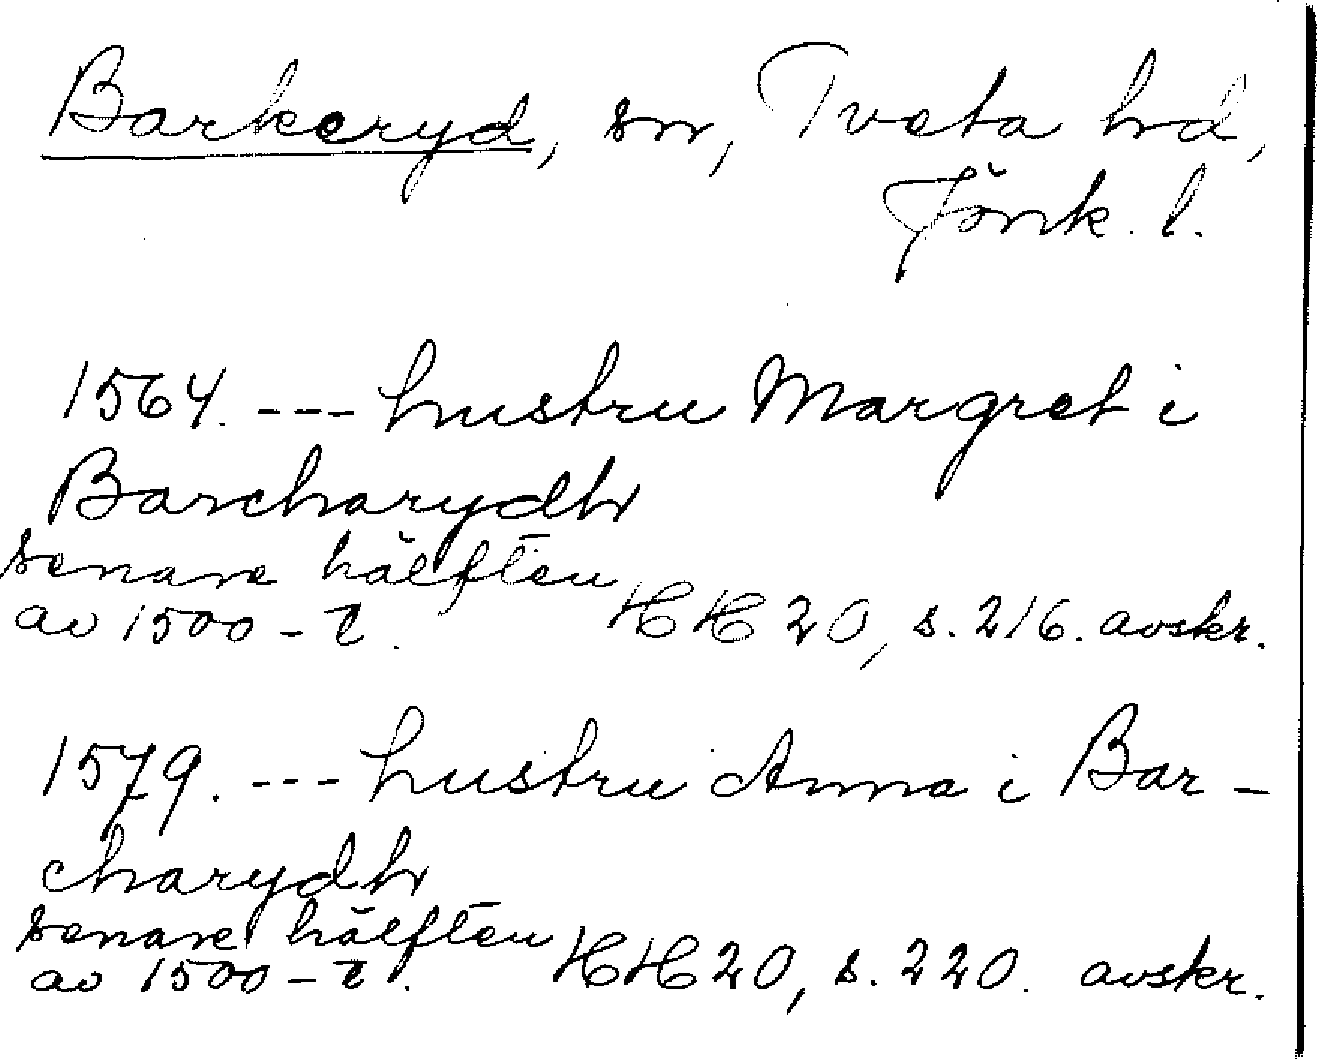 Barkeryd, sn, Tveta hd,
Jönk. l.
1564. --- hustru Margret i
Barcharydh
senare hälften
av 1500-t. HH 20, s. 216. avskr.
1579. --- hustru Anna i Bar-
charydh
senare hälften
av 1500-t. HH 20, s. 220. avskr.